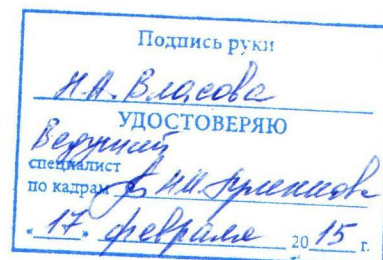 Подпись руки
Н.А. Власова
УДОСТОВЕРЯЮ
Ведущий
специалист
по кадрам Н.И.
«17» февраля 2015 г.